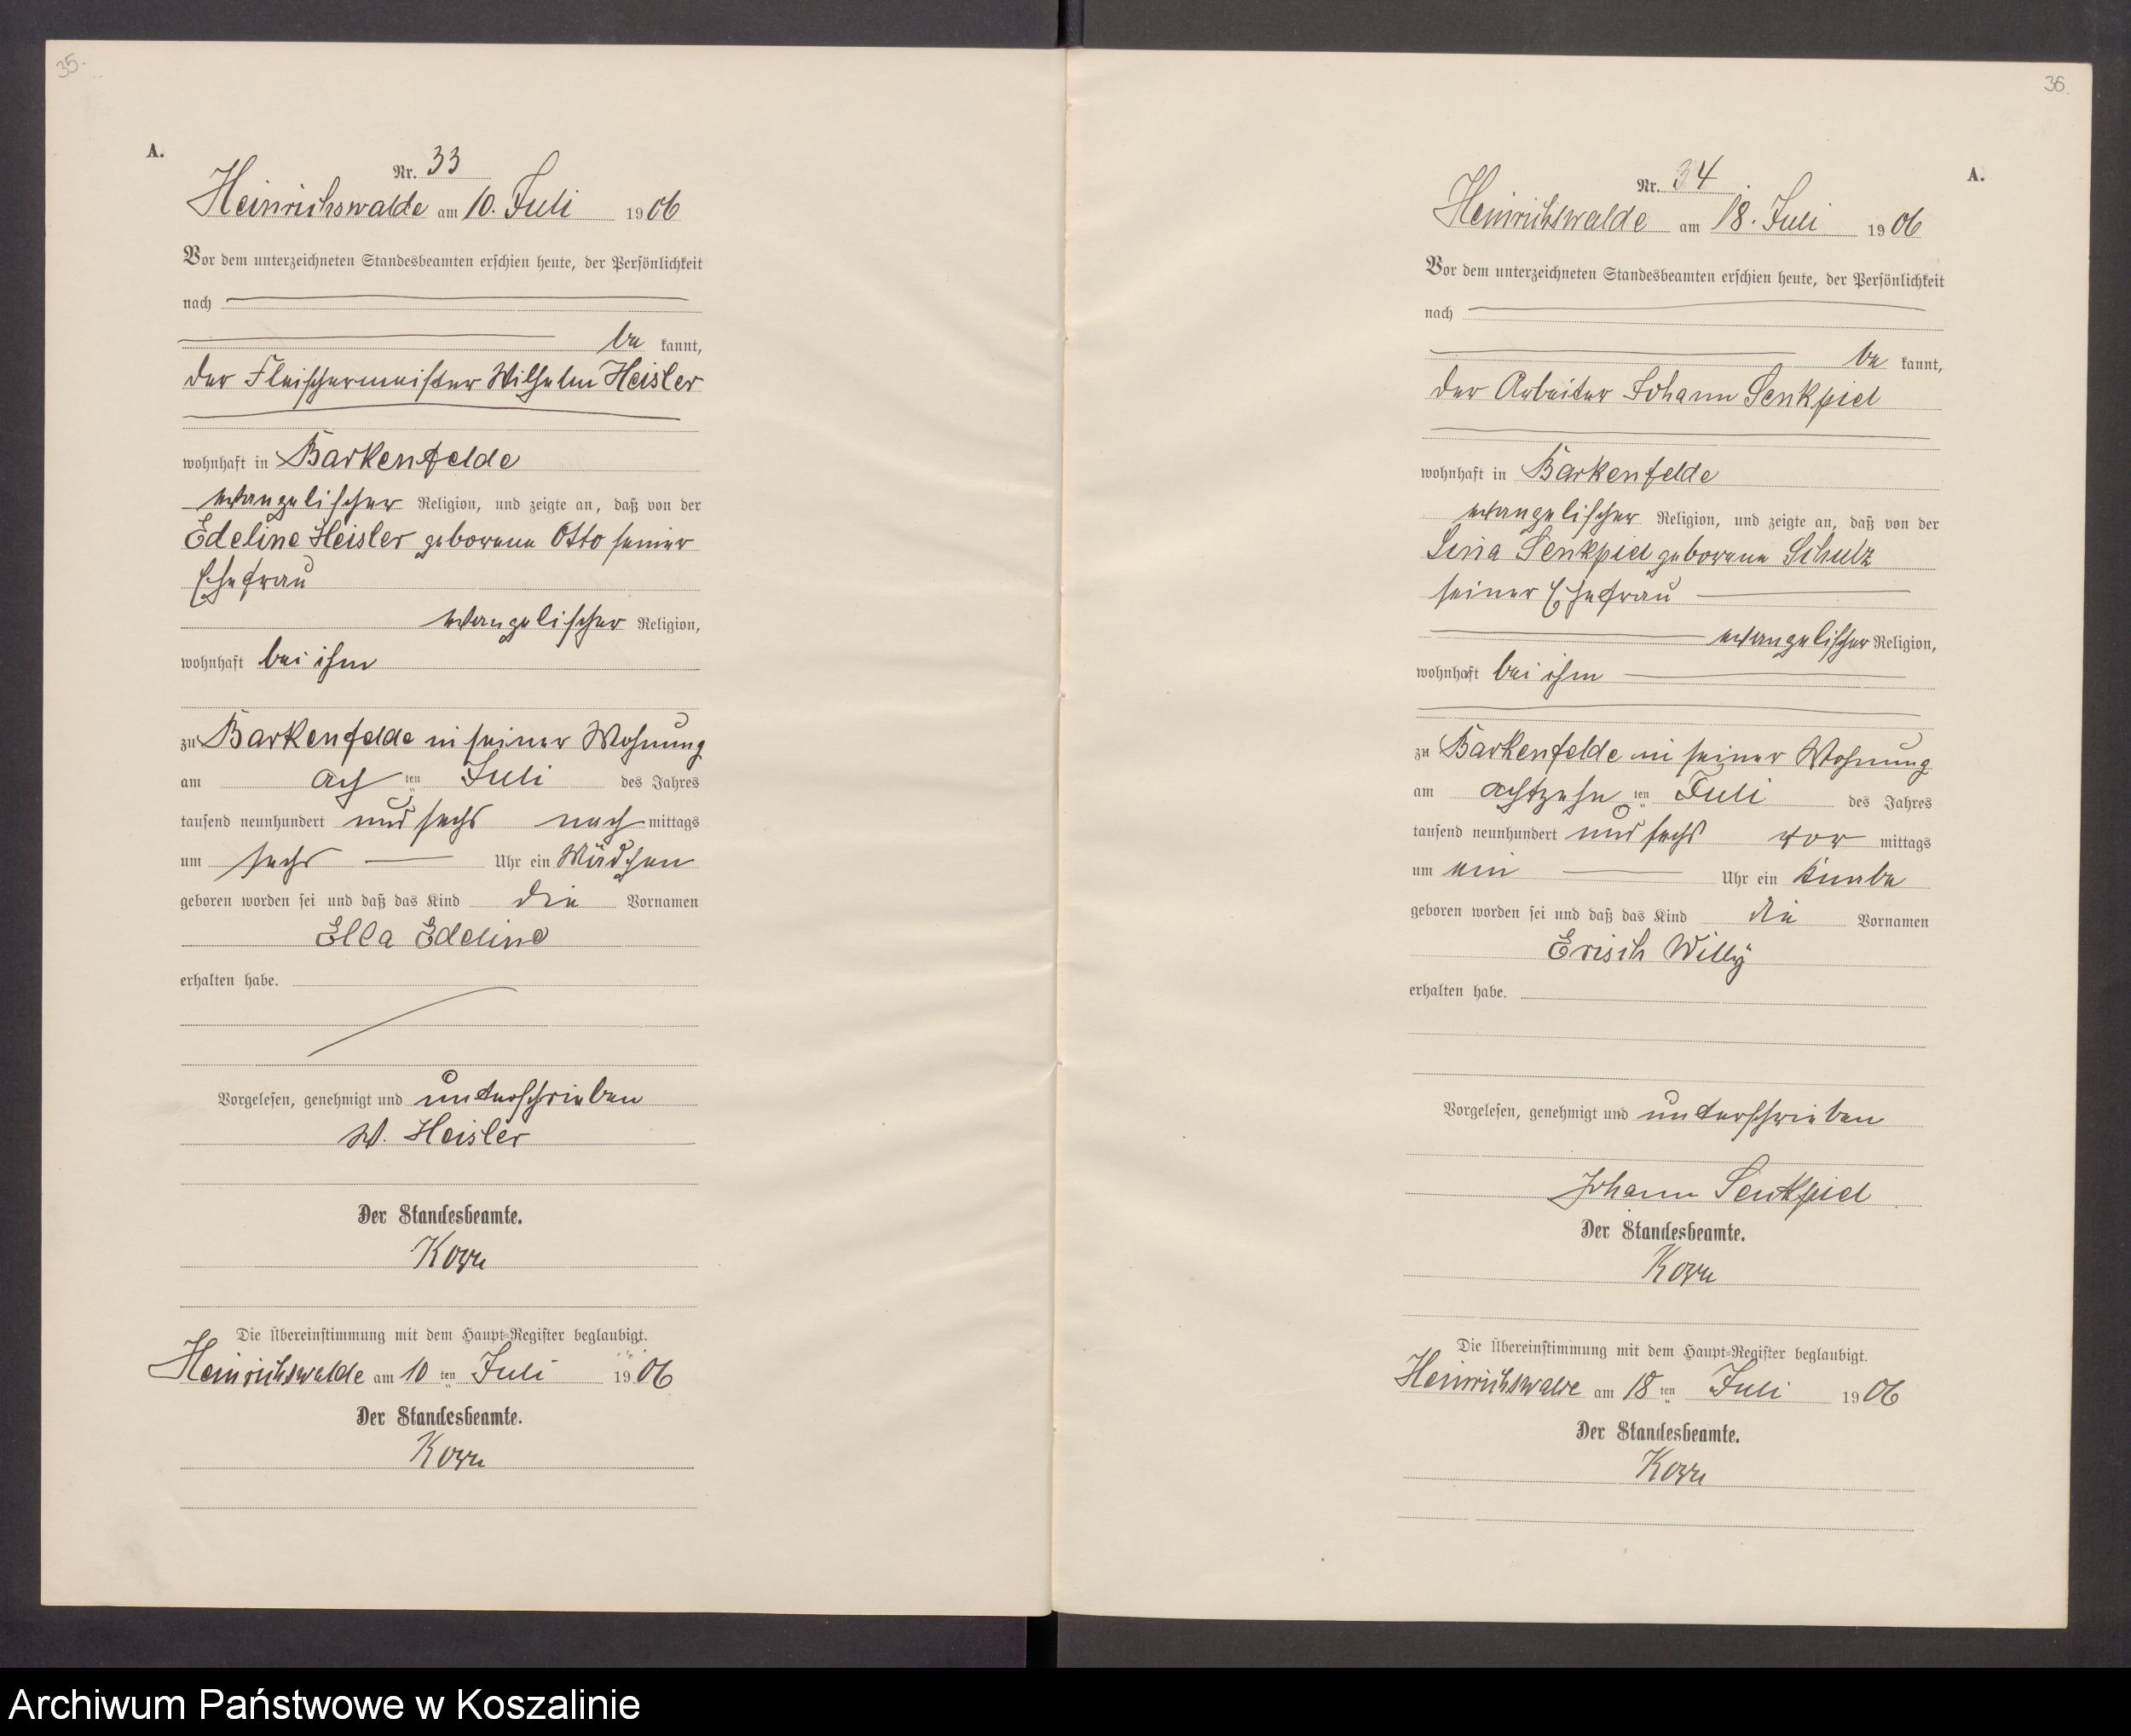 35.
A.
Nr. 33
Heinrichswalde am 10. Juli 1906
Vor dem unterzeichneten Standesbeamten erschien heute, der Persönlichkeit
nach
be kannt,
der Fleischermeister Wilhelm Heisler
wohnhaft in Barkenfelde
evangelischer Religion, und zeigte an, daß von der
Edeline Heisler geborene Otto seiner
Ehefrau
evangelischer Religion,
wohnhaft bei ihm
zu Barkenfelde in seiner Wohnung
am ach ten Juli des Jahres
tausend neunhundert und sechs nach mittags
um sechs Uhr ein Mädchen
geboren worden sei und daß das Kind die Vornamen
Ella Edeline
erhalten habe.
Vorgelesen, genehmigt und unterschrieben
W. Heisler
Der Standesbeamte.
Korn
Die Übereinstimmung mit dem Haupt-Register beglaubigt.
Heinrichswalde am 10 ten Juli 1906
Der Standesbeamte.
Korn
36.
A.
Nr. 34
Heinrichswalde am 18. Juli 1906
Vor dem unterzeichneten Standesbeamten erschien heute, der Persönlichkeit
nach
be kannt,
der Arbeiter Johann Senkpiel
wohnhaft in Barkenfelde
evangelischer Religion, und zeigte an, daß von der
Lina Senkpiel geborene Schulz
seiner Ehefrau
evangelischer Religion,
wohnhaft bei ihm
zu Barkenfelde in seiner Wohnung
am achtzehn ten Juli des Jahres
tausend neunhundert und sechs vor mittags
um ein Uhr ein Knabe
geboren worden sei und daß das Kind die Vornamen
Erich Willy
erhalten habe.
Vorgelesen, genehmigt und unterschrieben
Johann Senkpiel
Der Standesbeamte.
Korn
Die Übereinstimmung mit dem Haupt-Register beglaubigt.
Heinrichswalde am 18 ten Juli 1906
Der Standesbeamte.
Korn
Archiwum Państwowe w Koszalinie